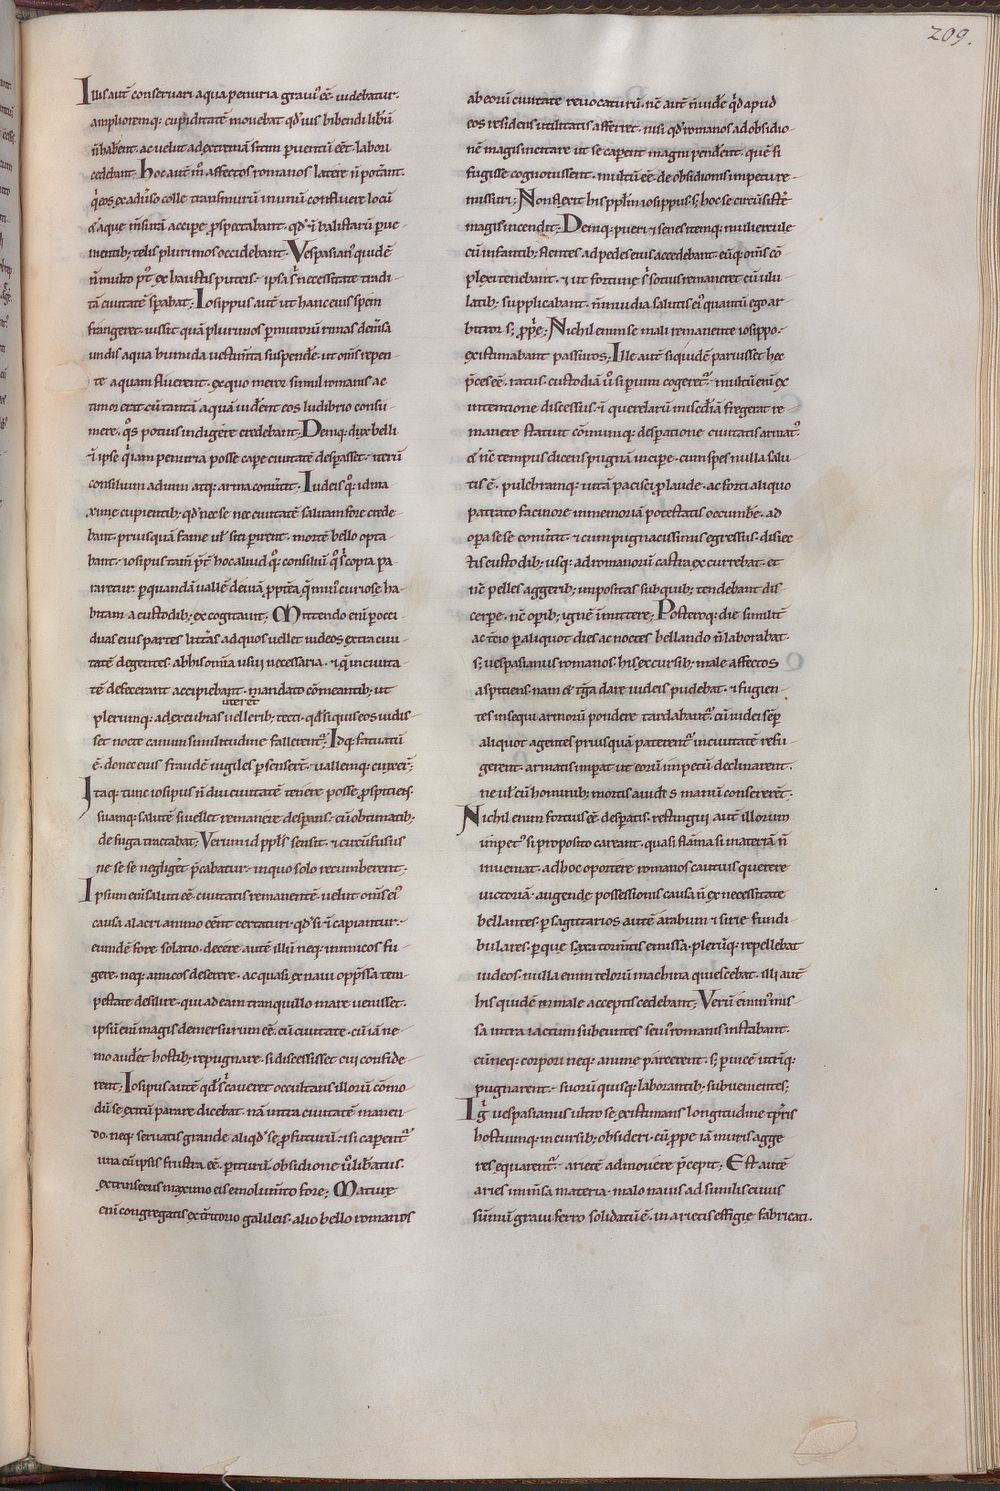 209.
Illis aut̄ conservari aqua penuria graui᷒ eē uidebatur.
amplioremq; cupiditatē mouebat qd̄ ius bibendi liberū
n̄ habent. ac velut ad extremā sitim peruentū eēt. labori
cedebant. Hoc aut̄ m̄ affectos romanos latere n̄ poterant.
q̇ eos ex aduerso colle trans murū in unū confluere locū
& aque m̄surā accipe prospectabant. qd̄ & balistarū ꝑue
nientib; telis plurimos occidebant. Vespasian᷒ quidē
n̄ multo pt᷒ exhaustis puteis. ipsa s᷒ necessitate tradi-
tā ciuitatē sperabat; Iosippus aut̄ ut hanc eius spem
frangeret. iussit quā plurimos ꝑ murorū pinnas demersa
undis aqua humida uestim̄ta suspendēre. ut om̄s repen-
te aquam fluerent. ex quo meror simul romanis ac
timor erat cū tantā aquā uiderent eos ludibrio consu-
mere. q̊s potius indigere credebant. Deniq; dux belli
& ipse q̇ iam penuria posse cape ciuitatē desperasset. iterū
consilium ad uim atq; arma conuertit. Iudeis q̊; id ma
xime cupientib; qd̄ nec se nec ciuitatē saluam fore crede-
bant. priusquā fame uel siti ꝑirent. mortē bello opta-
bant. iosipus tam̄ p̄t hoc aliud q̊; consiliū q̊ s᷒ copia pa
raretur. ꝑ quandā uallē deuiā ꝓpterea q̇ min᷒ curiose ha-
bitam a custodib; excogitauit. Mittendo enī ꝑ occi
duas eius partes litt̄as ad quos uellet iudeos extra ciui-
tatē degentes. ab his om̄ia usui necessaria. & q̄ in ciuita-
tē defecerant accipiebant. mandato cōmeantib; ut
uterēt̄
plerunq; ad excubias uellerib; tecti. qd̄ si quis eos uidis-
set nocte canum similitudine fallerent᷒; Idq; factitatū
ē. donec eius fraudē uigiles ꝑsenserēt. uallemq; cinxer᷒;
Itaq; tunc iosipus n̄ diu ciuitatē tenere posse ꝓspitiens.
suamq; salutē si uellet remanere desperans. cū obtimatib;
de fuga tractabat; Verum id ppl̄s sensit. & circū fusus
ne se se negliget̄ p̄cabatur. in quo solo recumberent.
Ipsum eni saluti eē ciuitatis remanentē. velut om̄s ei᷒
causa alacri animo cēnt certaturi. qd̄ si & capiantur.
eundē fore solatio. decere autē illū neq; inimicos fu-
gere. neq; amicos deserere. ac quasi ex naui oppressa tem-
pestate desilire. qui ad eam tranquillo mare uenisset.
ipsū enī magis demersurum eē. cū ciuitate. cū iā ne-
mo auderet hostib; repugnare. si discessisset cui confide-
rent; Iosipus autē qd̄ s᷒ caueret occultans illorū cōmo
dū se exitū parare dicebat. nā intra ciuitatē manen-
do. neq; seruatis grande aliqd̄ se ꝓfuturū. & si caperent᷒
una cū ipsis frustra eē ꝑiturū. obsidione u᷒ liberatus.
extrinsecus maximo eis emolum̄to fore; Mature
enī congregatis ex t̄ritorio galileis. alio bello romanos
ab eorū ciuitate reuocaturū. nc̄ aut̄ n̄ uidere q̇d apud
eos residens utilitatis afferret. nisi qd̄ romanos ad obsidio-
nē magis incitare ut se caperent magni pendent. que si
fugisse cognouissent. multū eē de obsidionis impetu re-
missuri; Non flexit his ppl̄m iosippus s; hoc se circūsistere
magis incendit. Deniq; pueri & senes itemq; muliercule
cū infantib; flentes ad pedes eius accedebant. eūq; om̄s cō-
plexi tenebant. & ut fortune s᷒ sotius remaneret cū ulu-
latib; supplicabant. n̄ inuidia salutis ei᷒ quantū ego ar-
bitror s; ꝓp̄e; Nichil enim se mali remanente iosippo.
existimabant passuros; Ille aut̄ siquidē paruisset hec
p̄ces eē. ratus. custodiā u᷒ si ꝑuim cogeret᷒. multū enī ex
intentione discessus & querelarū misc̄diā fregerat re-
manere statuit cōmuniq; desperatione ciuitatis armat᷒.
& nc̄ tempus dicens pugnā incipe. cum spes nulla salu-
tis ē. pulchramq; uitā pacisci ꝓ laude. ac forti aliquo
patrato facinore in memoriā potestatis occumbere. ad
opera sese conūtit. & cum pugnacissimis egressus. disiec
tis custodib; usq; ad romanorū castra excurrebat. et
nc̄ pelles aggerib; impositas sub quib; tendebant dis-
cerpere. nc̄ operib; ignē īmittere; Posteroq; die similit̄
ac t̄tio ꝑ aliquot dies ac noctes bellando n̄ laborabat.
s; uespasianus romanos. his excursib; male affectos
aspitiens. nam & t̄ga dare iudeis pudebat. & fugien-
tes insequi armorū pondere tardabant᷒. cū iudei semꝑ
aliquot agentes priusquā paterent᷒ in ciuitatē refu-
gerent. armatis imperat ut eorū impetū declinarent.
ne uel cū hominib; mortis auidis manū consererēt;
Nichil enim fortius eē desperatis. restingui aut̄ illorum
impet᷒ si proposito careant. quasi flāma si materiā n̄
inueniat. ad hoc oportere romanos cautius querere
uictoriā. augende possessionis causa n̄ ex necessitate
bellantes. ꝑ sagittarios autē arabum & sirie fundi-
bulares. ꝑ que saxa torm̄tis emissa. plerūq; repellebat
iudeos. nulla enim telorū machina quiescebat. illi aut̄
his quidē male acceptis cedebant; Verū emin᷒ mis-
sa intra iactum subeuntes seui᷒ romanis instabant.
cū neq; corpori neq; anime parcerent. s; ꝑ uicē utriq;
pugnarent. suorū quisq; laborantib; subuenientes;
Ig̊ uespasianus ultro se existimans longitudine tꝑ̄ris
hostiumq; incursib; obsideri. cū ꝓpe iā muris agge
res equarent᷒. arietē admouere p̄cepit; Est autē
aries inm̄sa materia. malo nauis adsimilis cuius
sūmū graui ferro solidatū ē. in arietis effigie fabricati.